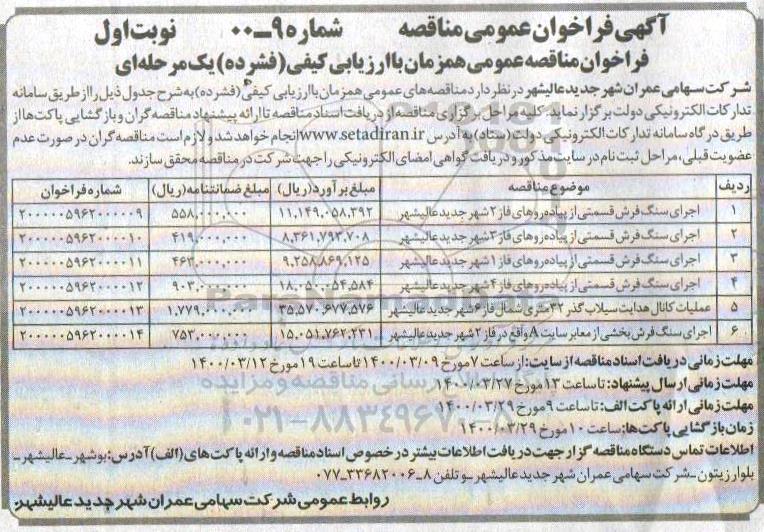 آگهی فراخوان عمومی مناقصه شماره ۹ــ۰۰ نوبت اول
فراخوان مناقصه عمومی همزمان با ارزیابی کیفی (فشرده) یک مرحله‌ای
شرکت سهامی عمران شهر جدید عالیشهر در نظر دارد مناقصه‌های عمومی همزمان با ارزیابی کیفی (فشرده) به شرح جدول ذیل را از طریق سامانه
تدارکات الکترونیکی دولت برگزار نماید. کلیه مراحل برگزاری مناقصه از دریافت اسناد مناقصه تا ارائه پیشنهاد مناقصه گران و بازگشایی پاکت‌ها از
طریق درگاه سامانه تدارکات الکترونیکی دولت (ستاد) به آدرس www.setadiran.ir انجام خواهد شد و لازم است مناقصه گران در صورت عدم
عضویت قبلی، مراحل ثبت نام در سایت مذکور و دریافت گواهی امضای الکترونیکی را جهت شرکت در مناقصه محقق سازند.
ردیف موضوع مناقصه مبلغ برآورد (ریال) مبلغ ضمانتنامه (ریال) شماره فراخوان
۱ اجرای سنگ فرش قسمتی از پیاده‌روهای فاز ۲ شهر جدید عالیشهر ۱۱,۱۴۹,۰۵۸,۳۹۲ ۵۵۸,۰۰۰,۰۰۰ ۲۰۰۰۰۰۵۹۶۲۰۰۰۰۰۹
۲ اجرای سنگ فرش قسمتی از پیاده‌روهای فاز ۳ شهر جدید عالیشهر ۸,۳۶۱,۷۹۲,۷۰۸ ۴۱۹,۰۰۰,۰۰۰ ۲۰۰۰۰۰۵۹۶۲۰۰۰۰۱۰
۳ اجرای سنگ فرش قسمتی از پیاده‌روهای فاز ۱ شهر جدید عالیشهر ۹,۲۵۸,۸۶۹,۱۲۵ ۴۶۳,۰۰۰,۰۰۰ ۲۰۰۰۰۰۵۹۶۲۰۰۰۰۱۱
۴ اجرای سنگ فرش قسمتی از پیاده‌روهای فاز ۴ شهر جدید عالیشهر ۱۸,۰۵۰,۰۵۴,۵۸۴ ۹۰۳,۰۰۰,۰۰۰ ۲۰۰۰۰۰۵۹۶۲۰۰۰۰۱۲
۵ عملیات کانال هدایت سیلاب گذر ۳۲ متری شمال فاز ۶ شهر جدید عالیشهر ۳۵,۵۷۰,۶۷۷,۵۷۶ ۱,۷۷۹,۰۰۰,۰۰۰ ۲۰۰۰۰۰۵۹۶۲۰۰۰۰۱۳
۶ اجرای سنگ فرش بخشی از معابر سایت A واقع در فاز ۲ شهر جدید عالیشهر ۱۵,۰۵۱,۷۶۲,۲۳۱ ۷۵۳,۰۰۰,۰۰۰ ۲۰۰۰۰۰۵۹۶۲۰۰۰۰۱۴
مهلت زمانی دریافت اسناد مناقصه از سایت: از ساعت ۷ مورخ ۱۴۰۰/۰۳/۰۹ تا ساعت ۱۹ مورخ ۱۴۰۰/۰۳/۱۲
مهلت زمانی ارسال پیشنهاد: تا ساعت ۱۳ مورخ ۱۴۰۰/۰۳/۲۷
مهلت زمانی ارائه پاکت الف: تا ساعت ۹ مورخ ۱۴۰۰/۰۳/۲۹
زمان بازگشایی پاکت‌ها: ساعت ۱۰ مورخ ۱۴۰۰/۰۳/۲۹
اطلاعات تماس دستگاه مناقصه گزار جهت دریافت اطلاعات بیشتر در خصوص اسناد مناقصه و ارائه پاکت‌های (الف) آدرس: بوشهر ـ عالیشهر ـ
بلوار زیتون ـ شرکت سهامی عمران شهر جدید عالیشهر ـ و تلفن ۸ـ۳۳۶۸۲۰۰۶ـ۰۷۷
روابط عمومی شرکت سهامی عمران شهر جدید عالیشهر